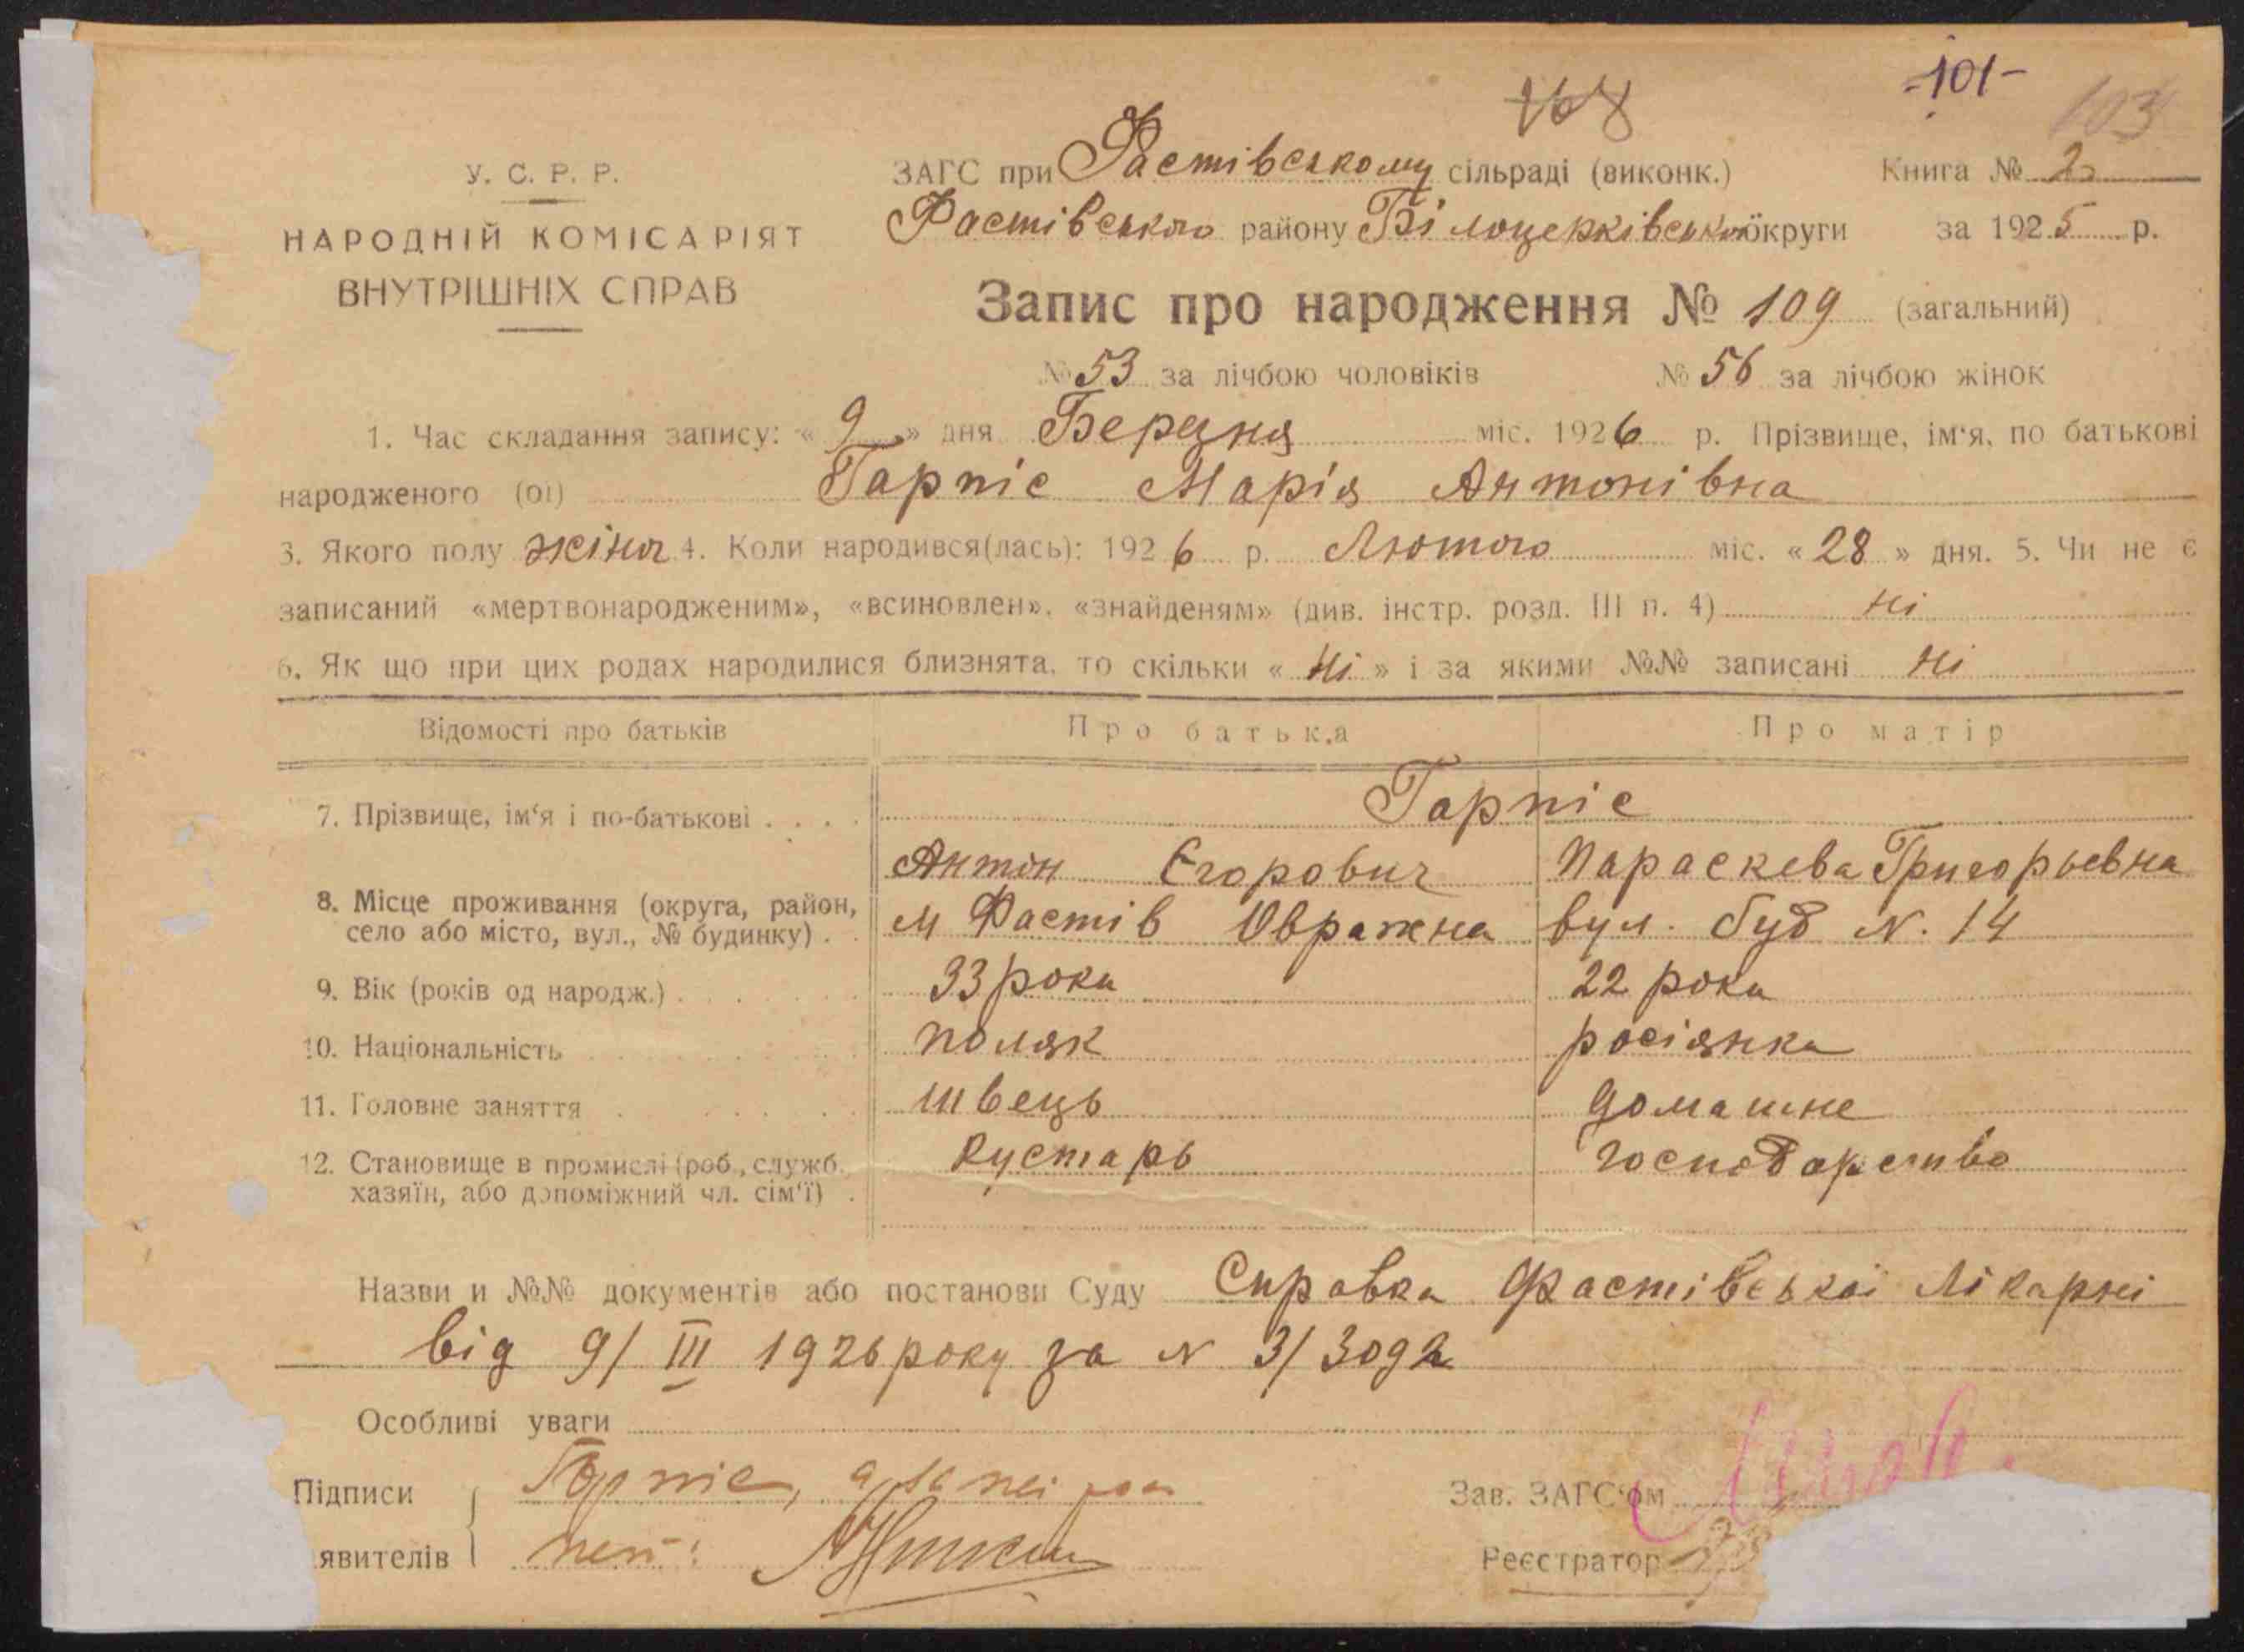 101
103
168
У. С. Р. Р.
НАРОДНІЙ КОМІСАРІЯТ
ВНУТРІШНІХ СПРАВ
ЗАГС при Фастівському сільраді (виконк.) Книга № 2
Фастівського району Білоцерківської округи за 1925 р.
Запис про народження № 109 (загальний)
№ 53 за лічбою чоловіків № 56 за лічбою жінок
1. Час складання запису: « 9 » дня Березня міс. 1926 р. Прізвище, ім'я, по батькові
народженого (ої) Гарпіс Марія Антонівна
3. Якого полу жіноч 4. Коли народився(лась): 1926 р. Лютого міс. « 28 » дня. 5. Чи не є
записаний «мертвонародженим», «всиновлен», «знайденям» (див. інстр. розд. III п. 4) Ні
6. Як що при цих родах народилися близнята, то скільки « Ні » і за якими №№ записані Ні
Відомості про батьків Про батька Про матір
7. Прізвище, ім'я і по-батькові . . . . Гарпіс
Антон Егорович Параскева Григорьевна
8. Місце проживання (округа, район,
село або місто, вул., № будинку) . . м Фастів Овражна вул. буд N. 14
9. Вік (років од народж.) 33 роки 22 роки
10. Національність поляк росіянка
11. Головне заняття швець домашне
12. Становище в промислі (роб., служб. кустарь господарство
хазяїн, або допоміжний чл. сім'ї) .
Назви и №№ документів або постанови Суду Справка Фастівської Лікарні
від 9/ III 1926 року за N 3/3092
Особливі уваги
Підписи Гарпіс,
явителів
Зав. ЗАГС'ом
Реєстратор